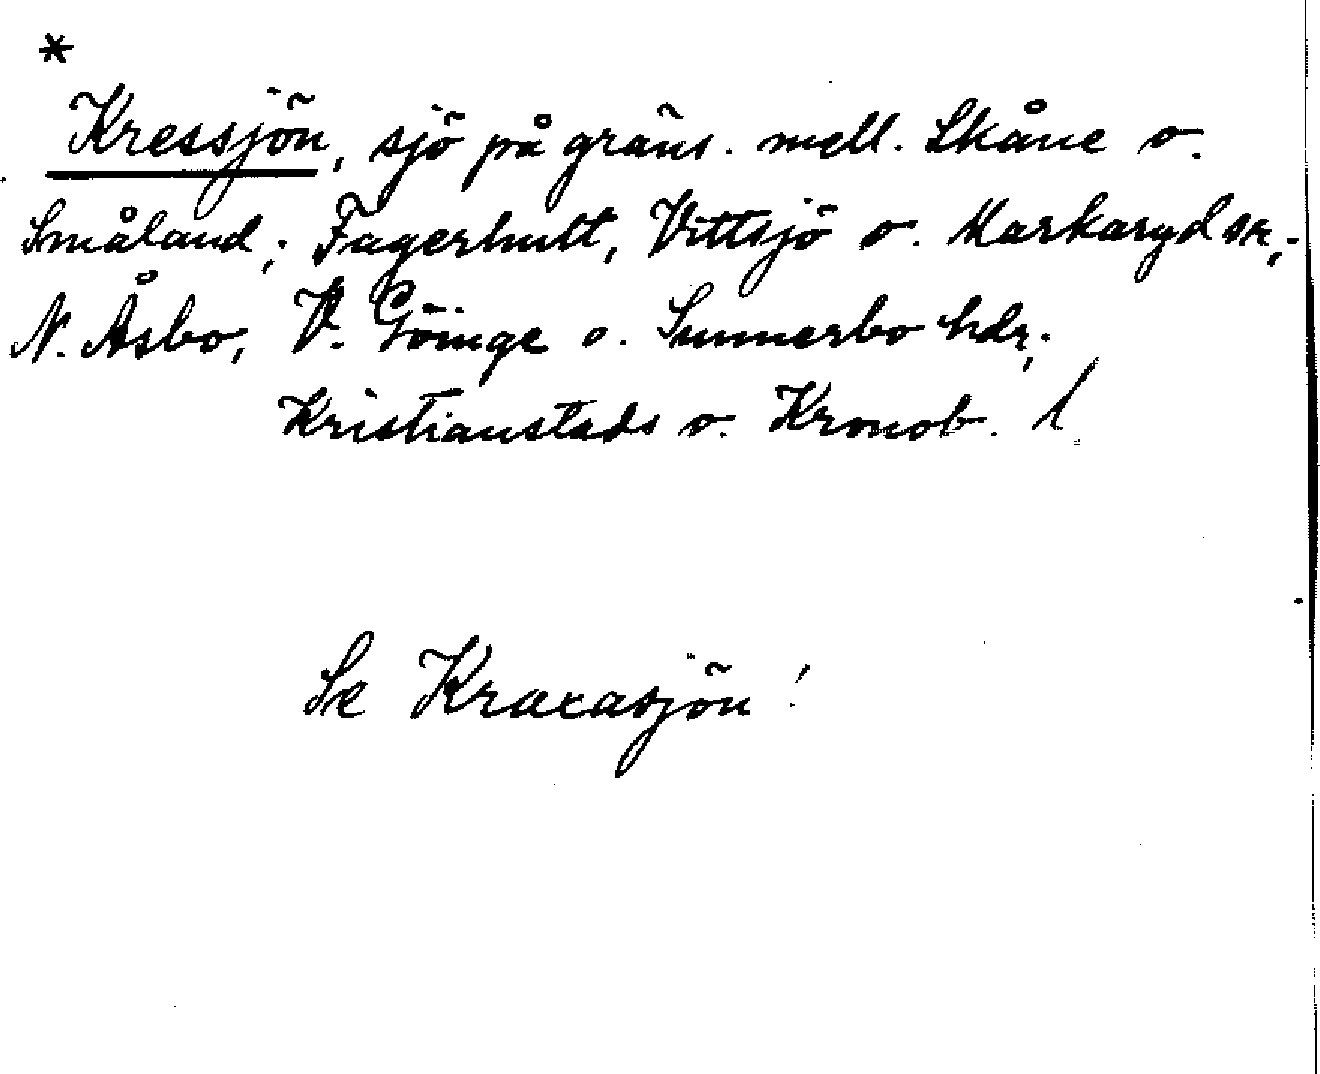 *
Kressjön, sjö på gräns. mell. Skåne o.
Småland; Fagerhult, Vittsjö o. Markaryd sn,;
N. Åsbo, V. Göinge o. Sunnerbo hdr,.
Kristianstads o. Kronob. l
Se Kraxasjön!